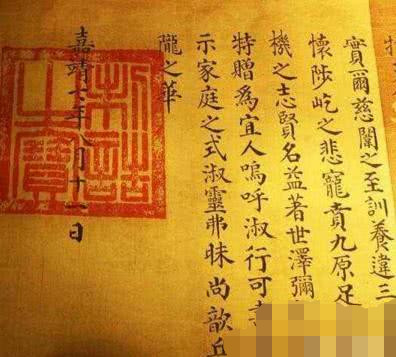 實爾慈闈之至訓養違三
懷陟屺之悲寵賁九原足
機之志賢名益著世澤彌
特贈為宜人嗚呼淑行可
示家庭之式淑靈弗昧尚歆丘
隴之華
嘉靖七年八月十一日
制誥之寶